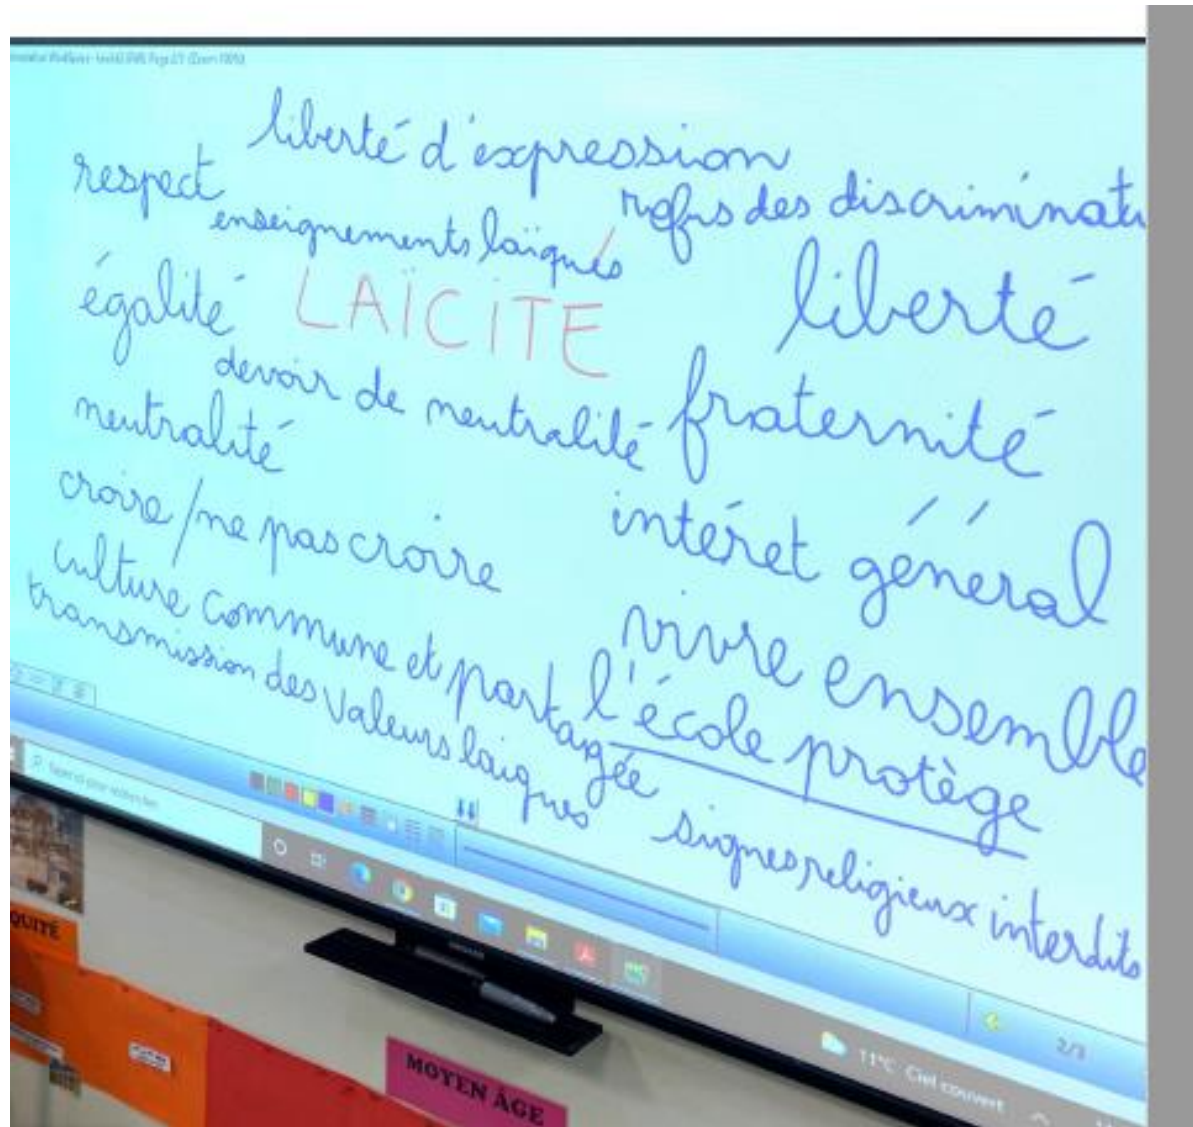 liberté d'expression
respect
refus des discriminati
enseignements laïques
égalité
LAÏCITÉ
liberté
devoir de neutralité
fraternité
neutralité
croire/ne pas croire
intéret général
culture commune et partagée
vivre ensemble
transmission des valeurs laiques
l'école protège
signes religieux interdits
QUITÉ
MOYEN ÂGE
2/3
11°C Ciel couvert